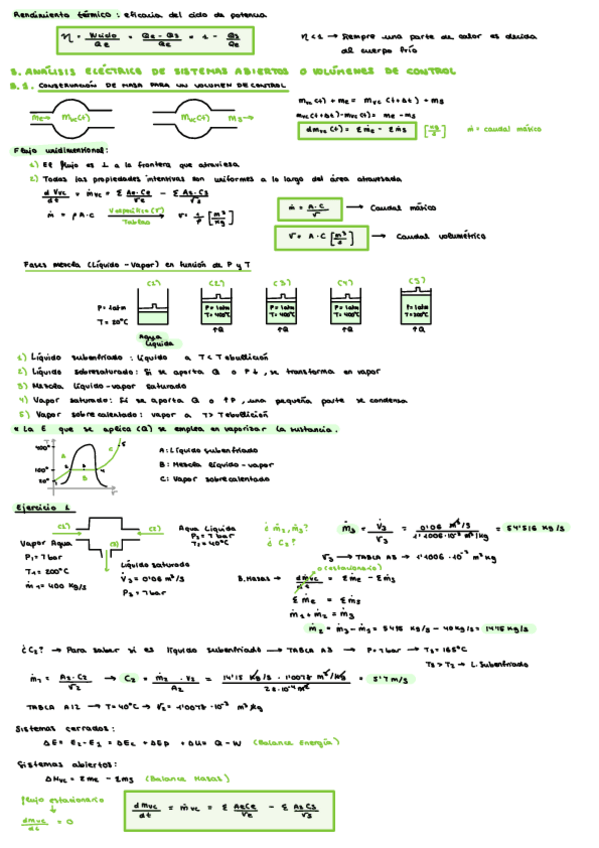 Rendimiento térmico: eficacia del ciclo de potencia
η = Wciclo / Qe = Qe - Qs / Qe = 1 - Qs / Qe
η < 1 → Siempre una parte de calor es cedida
al cuerpo frío
5.1. CONSERVACIÓN DE MASA PARA UN VOLUMEN DE CONTROL
me→ mvc(t)
mvc(t) ms→
mvc(t) + me = mvc(t+Δt) + ms
mvc(t+Δt) - mvc(t) = me - ms
dmvc(t) = Σṁe - Σṁs [kg/s] ṁ = caudal másico
Flujo unidimensional:
1) El flujo es ⊥ a la frontera que atraviesa
2) Todas las propiedades intensivas son uniformes a lo largo del área atravesada
= ṁvc = Σ Ae·Ce / ve - Σ As·Cs / vs
ṁ = ρ·A·C
Tablas
v = 1/ρ [m³/kg]
ṁ = A·C / v → Caudal másico
= A·C [m³/s] → Caudal volumétrico
Fases mezcla (Líquido-Vapor) en función de P y T
(1) (2) (3) (4) (5)
P = 1atm
T = 20°C
Agua
Líquida
↑Q ↑Q ↑Q ↑Q
1) Líquido subenfriado: líquido a T < T ebullición
2) Líquido sobresaturado: Si se aporta Q o P↓, se transforma en vapor
3) Mezcla líquido-vapor saturado
4) Vapor saturado: Si se aporta Q o ↑P, una pequeña parte se condensa
5) Vapor sobrecalentado: vapor a T > T ebullición
* La E que se aplica (Q) se emplea en vaporizar la sustancia.
A: Líquido subenfriado
B: Mezcla líquido-vapor
C: Vapor sobrecalentado
Ejercicio 1
(1) (2)
(3)
Vapor Agua
P₁ = 7bar
T₁ = 200°C
ṁ₁ = 400 kg/s
Agua Líquida
P₂ = 7bar
T₂ = 40°C
Líquido saturado
V̇₃ = 0'06 m³/s
P₃ = 7bar
¿ṁ₂, ṁ₃?
¿C₂?
ṁ₃ = V̇₃ / v₃ = 0'06 m³/s = 54'516 kg/s
v₃ → TABLA A3
o (estacionario)
B.Masas → dmvc / dt = Σṁe - Σṁs
Σṁe = Σṁs
ṁ₁ + ṁ₂ = ṁ₃
¿C₂? → Para saber si es líquido subenfriado → TABLA A3 → P = 7bar → Ts = 165°C
Ts > T₂ → L. Subenfriado
= A₂·C₂ / v₂ → C₂ = ṁ₂·v₂ / A₂ = = 5'7 m/s
TABLA A12 → T = 40°C → v₂ = 1'0078·10⁻³ m³/kg
Sistemas cerrados:
ΔE = E₂ - E₁ = ΔEc + ΔEp + ΔU = Q - W (Balance Energía)
Sistemas abiertos:
ΔMvc = Σme - Σms (Balance Masas)
flujo estacionario
↓
dmvc / dt = 0
dmvc / dt = ṁvc = Σ AeCe / ve - Σ AsCs / vs